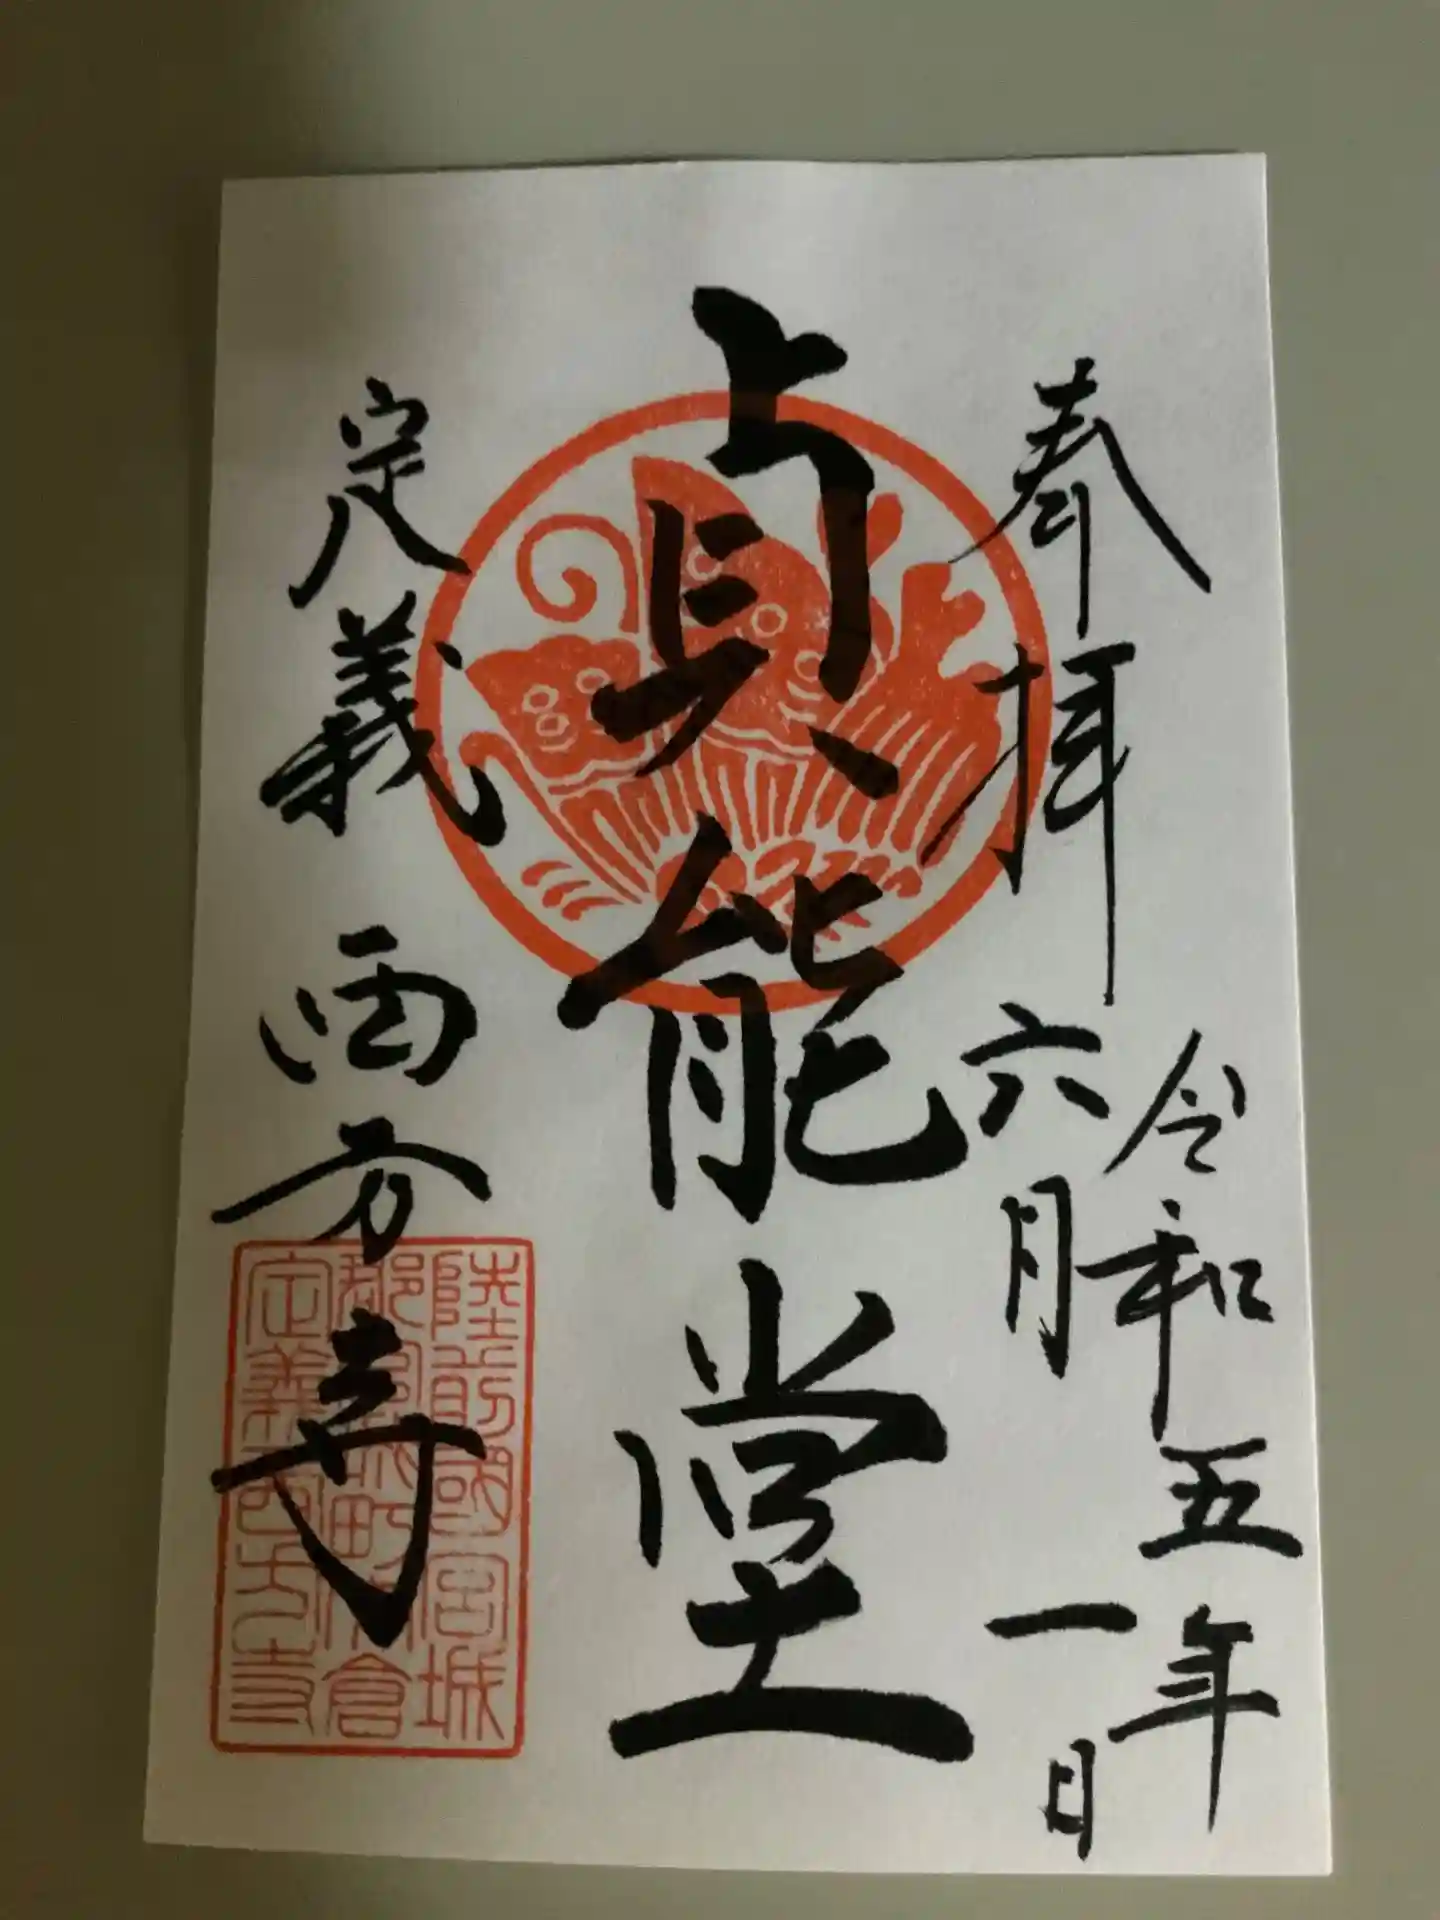 奉拝
令和五年
六月一日
貞能堂
定義西方寺
陸前國宮城
定義西方寺